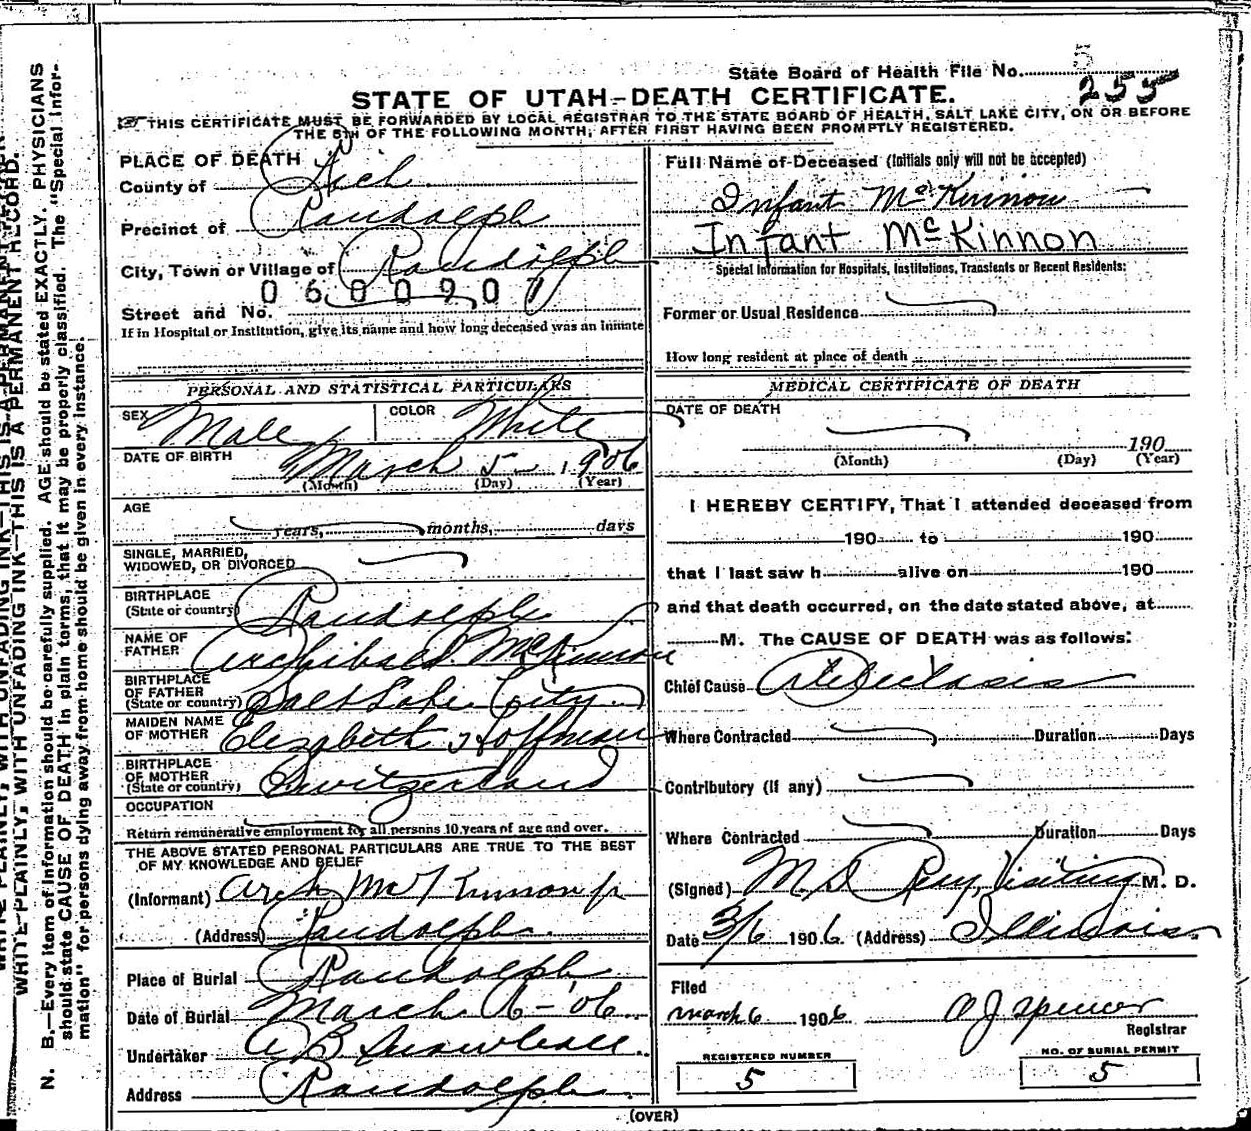 State Board of Health File No. 5
255
STATE OF UTAH—DEATH CERTIFICATE.
THIS CERTIFICATE MUST BE FORWARDED BY LOCAL REGISTRAR TO THE STATE BOARD OF HEALTH, SALT LAKE CITY, ON OR BEFORE
THE 5TH OF THE FOLLOWING MONTH, AFTER FIRST HAVING BEEN PROMPTLY REGISTERED.
PLACE OF DEATH
County of Rich
Precinct of Randolph
City, Town or Village of Randolph
0600907
Street and No.
If in Hospital or Institution, give its name and how long deceased was an inmate
PERSONAL AND STATISTICAL PARTICULARS
SEX Male COLOR White
DATE OF BIRTH March 5- 1906
(Month) (Day) (Year)
AGE
years, months, days
SINGLE, MARRIED,
WIDOWED, OR DIVORCED
BIRTHPLACE
(State or country) Randolph
NAME OF
FATHER Archibald McKinnon
BIRTHPLACE
OF FATHER
(State or country) Salt Lake City
MAIDEN NAME
OF MOTHER Elizabeth Hoffman
BIRTHPLACE
OF MOTHER
(State or country) Switzerland
OCCUPATION
Return remunerative employment for all persons 10 years of age and over.
THE ABOVE STATED PERSONAL PARTICULARS ARE TRUE TO THE BEST
OF MY KNOWLEDGE AND BELIEF
(Informant) Arch McKinnon jr
(Address) Randolph
Place of Burial Randolph
Date of Burial March 6-'06
Undertaker A B Snowball
Address Randolph
Full Name of Deceased (Initials only will not be accepted)
Infant McKinnon
Infant McKinnon
Special Information for Hospitals, Institutions, Transients or Recent Residents:
Former or Usual Residence
How long resident at place of death
MEDICAL CERTIFICATE OF DEATH
DATE OF DEATH
190
(Month) (Day) (Year)
I HEREBY CERTIFY, That I attended deceased from
190 to 190
that I last saw h alive on 190
and that death occurred, on the date stated above, at
M. The CAUSE OF DEATH was as follows:
Chief Cause Atelectasis
Where Contracted Duration Days
Contributory (If any)
Where Contracted Duration Days
(Signed) M. D. Visiting M. D.
Date 3/6 1906. (Address) Illinois
Filed
March 6 1906 O J Spencer
Registrar
REGISTERED NUMBER
5
NO. OF BURIAL PERMIT
5
(OVER)
WRITE PLAINLY, WITH UNFADING INK—THIS IS A PERMANENT RECORD.
N. B.—Every item of information should be carefully supplied. AGE should be stated EXACTLY. PHYSICIANS
should state CAUSE OF DEATH in plain terms, that it may be properly classified. The "Special Infor-
mation" for persons dying away from home should be given in every instance.